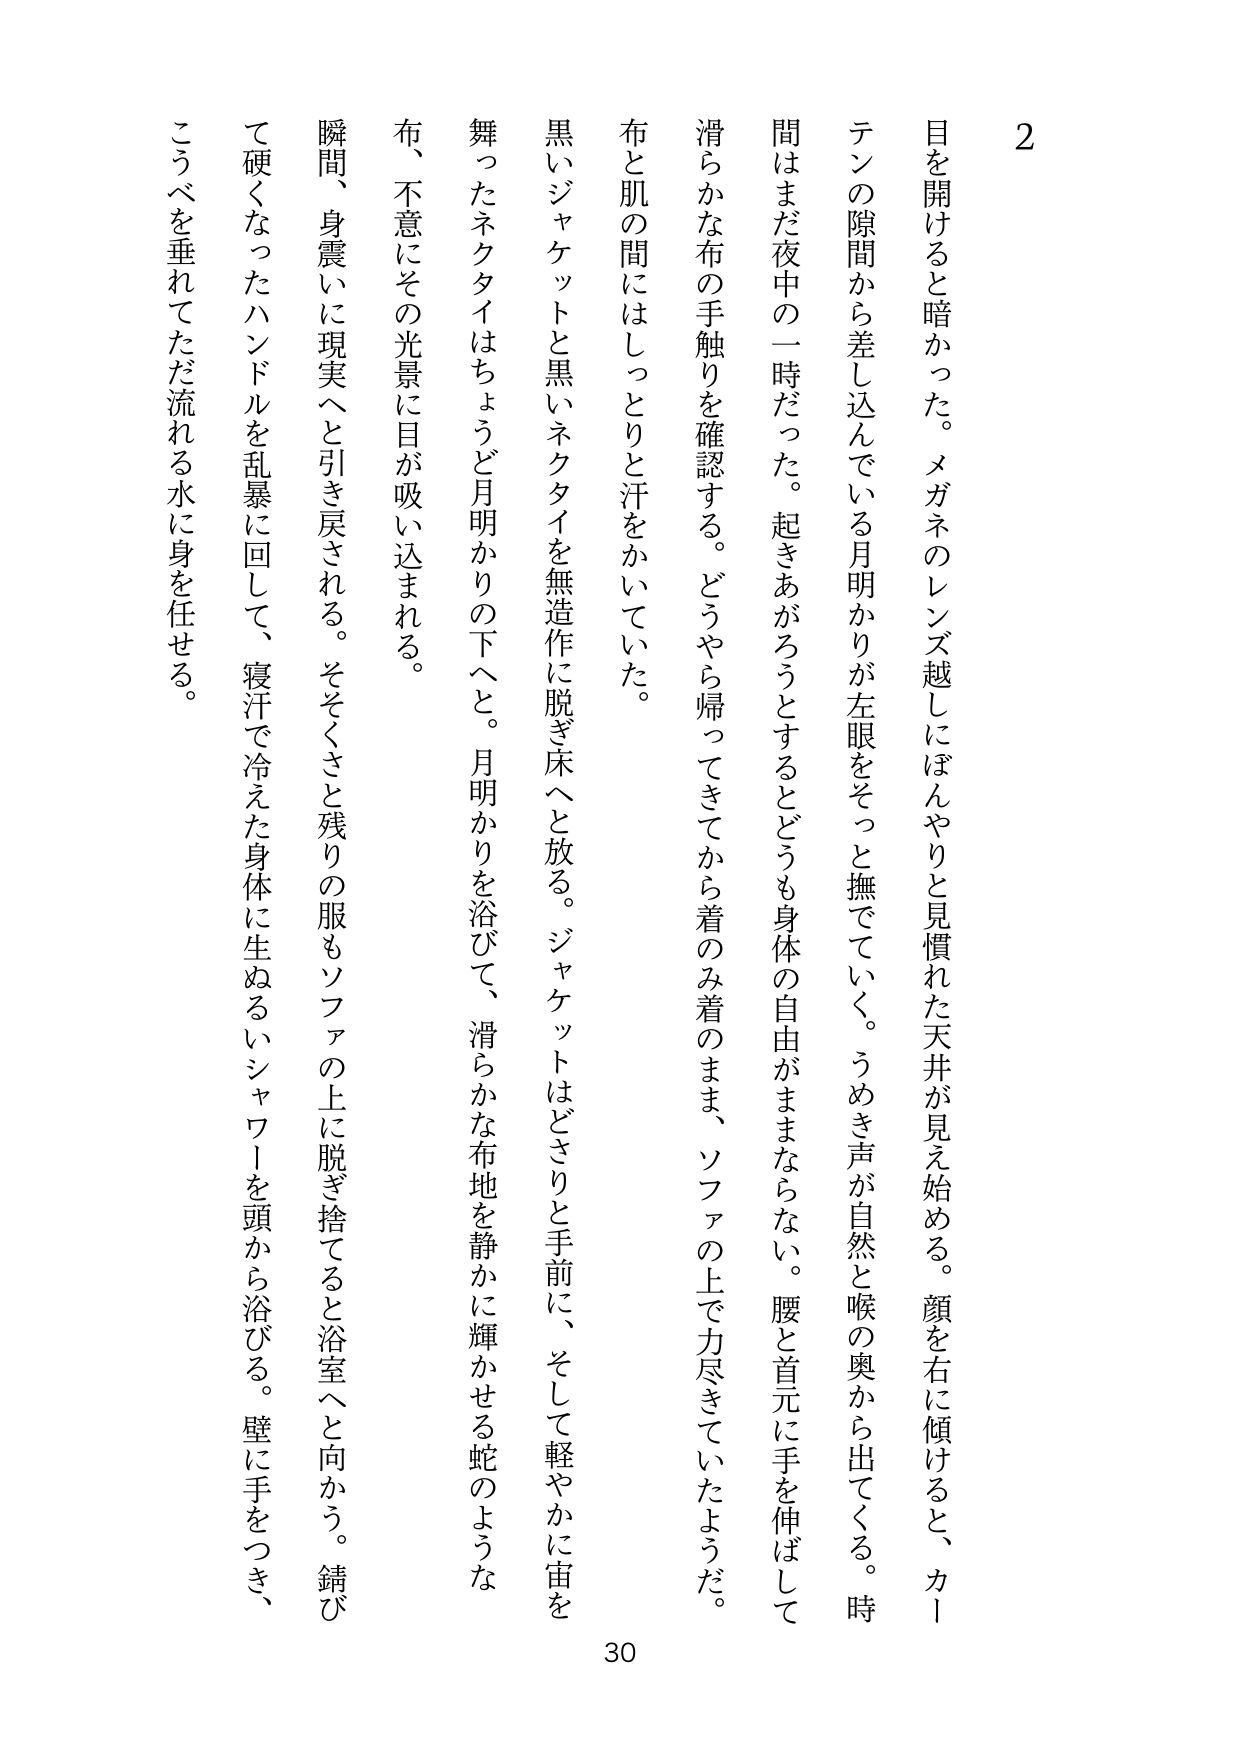 2
目を開けると暗かった。メガネのレンズ越しにぼんやりと見慣れた天井が見え始める。顔を右に傾けると、カー
テンの隙間から差し込んでいる月明かりが左眼をそっと撫でていく。うめき声が自然と喉の奥から出てくる。時
間はまだ夜中の一時だった。起きあがろうとするとどうも身体の自由がままならない。腰と首元に手を伸ばして
滑らかな布の手触りを確認する。どうやら帰ってきてから着のみ着のまま、ソファの上で力尽きていたようだ。
布と肌の間にはしっとりと汗をかいていた。
黒いジャケットと黒いネクタイを無造作に脱ぎ床へと放る。ジャケットはどさりと手前に、そして軽やかに宙を
舞ったネクタイはちょうど月明かりの下へと。月明かりを浴びて、滑らかな布地を静かに輝かせる蛇のような
布、不意にその光景に目が吸い込まれる。
瞬間、身震いに現実へと引き戻される。そそくさと残りの服もソファの上に脱ぎ捨てると浴室へと向かう。錆び
て硬くなったハンドルを乱暴に回して、寝汗で冷えた身体に生ぬるいシャワーを頭から浴びる。壁に手をつき、
こうべを垂れてただ流れる水に身を任せる。
30